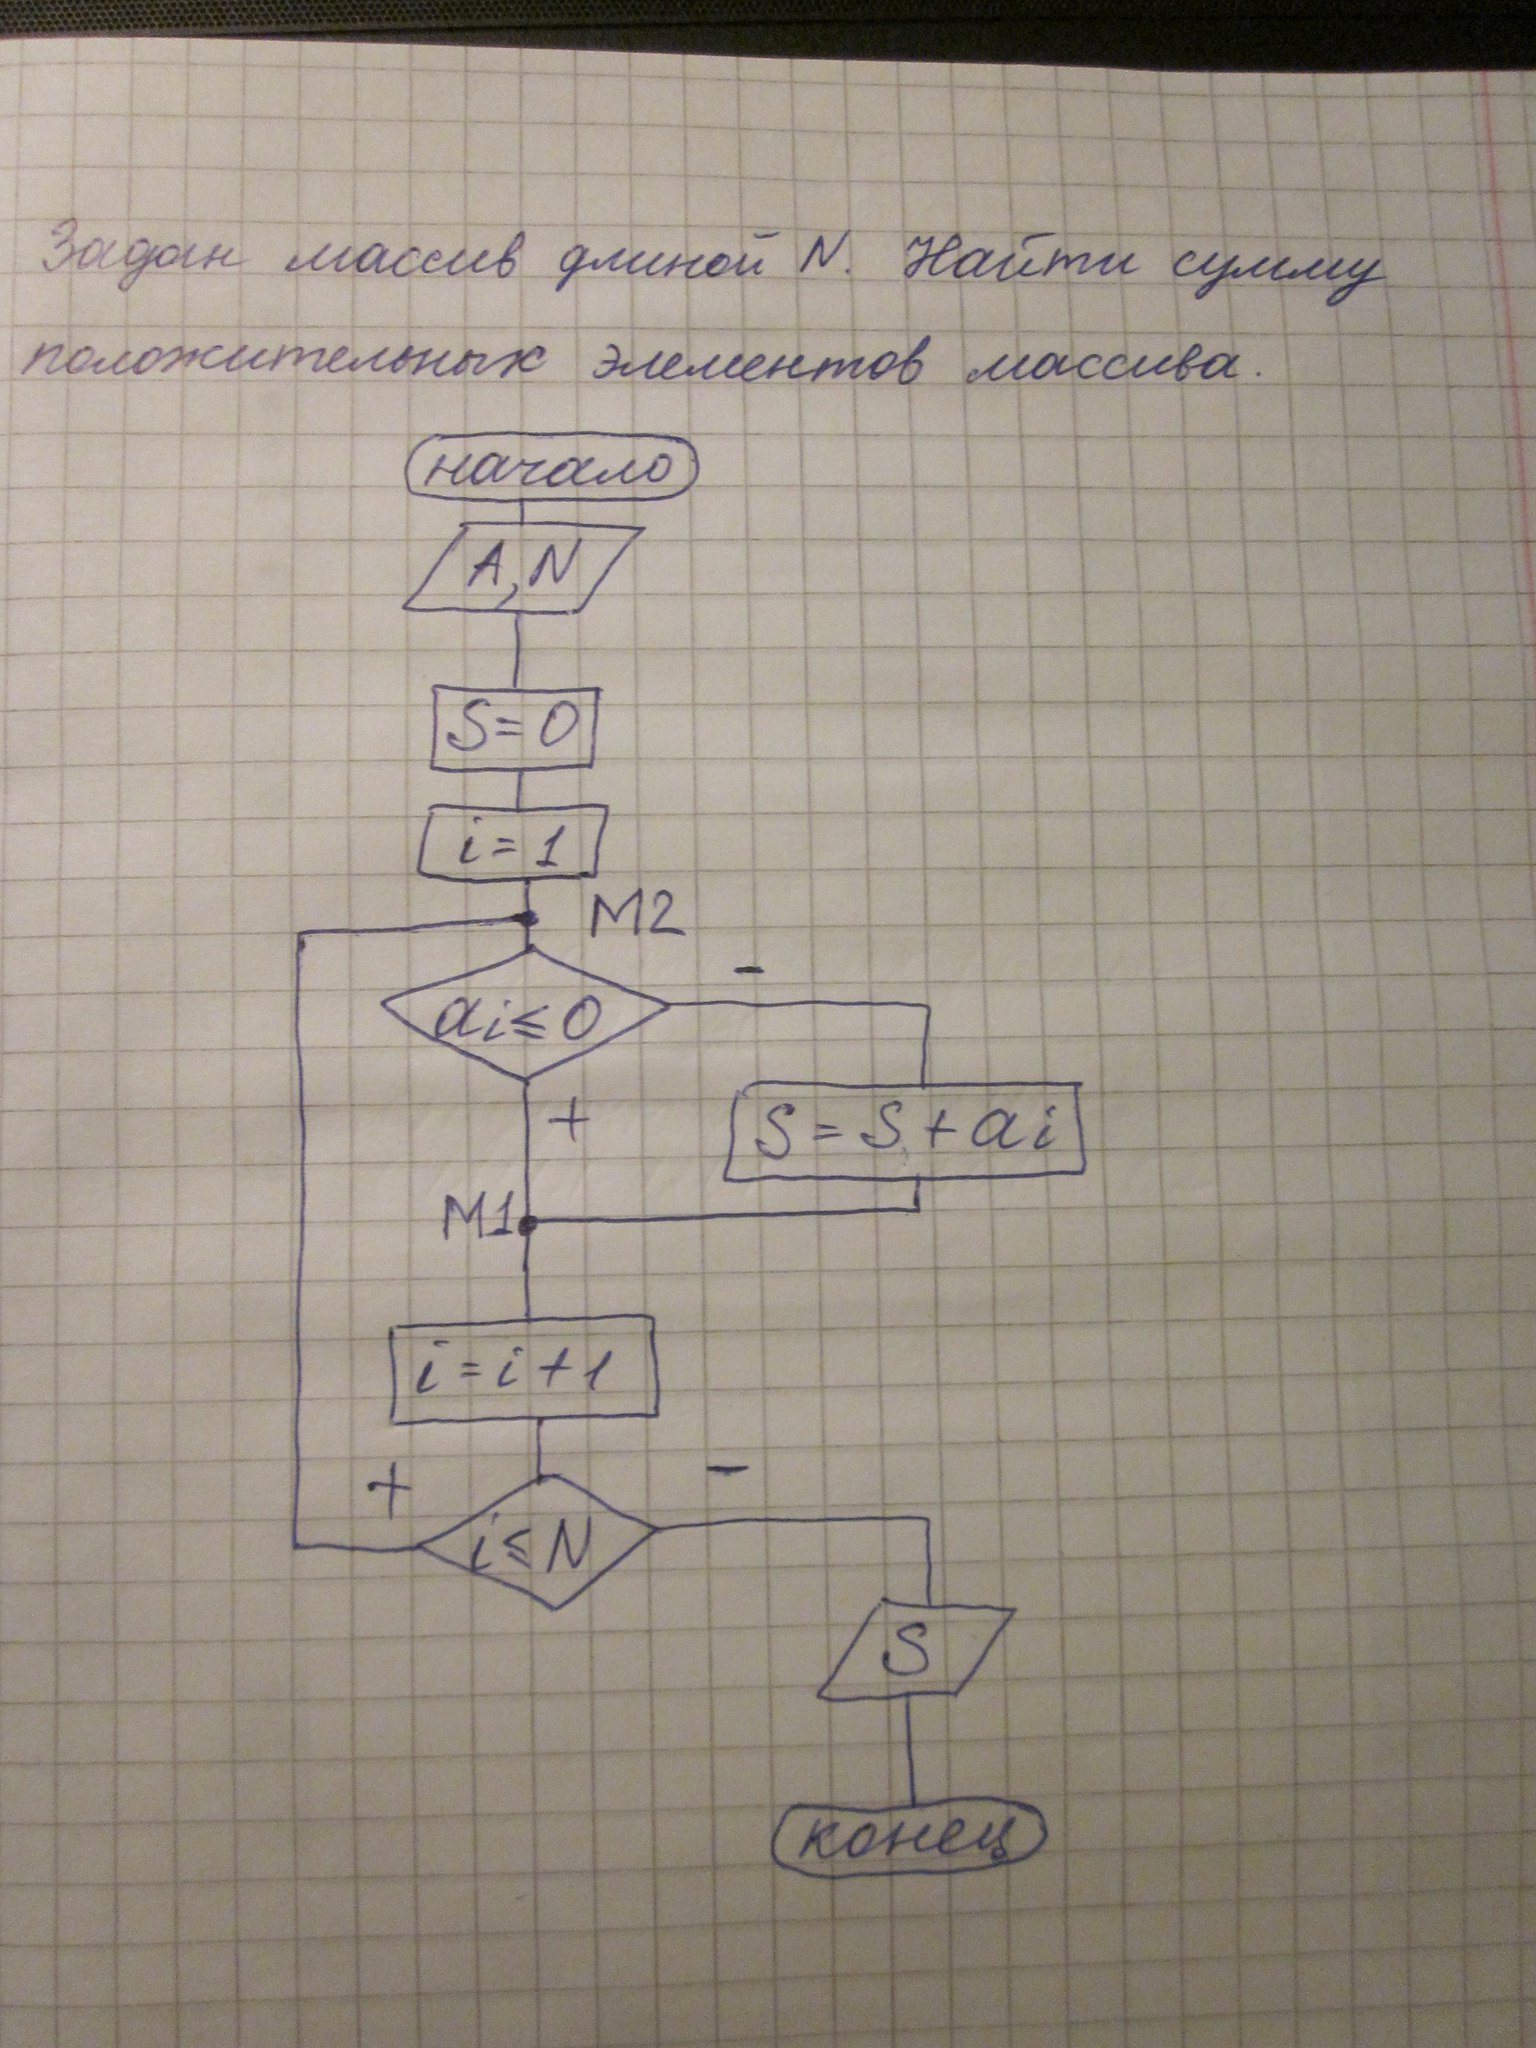 Задан массив длиной N. Найти сумму
положительных элементов массива.
начало
A, N
S = 0
i = 1
M2
ai ≤ 0
-
+
S = S + ai
M1
i = i + 1
+
-
i ≤ N
S
конец